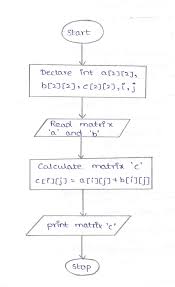 Start
Declare int a[2][2],
b[2][2], c[2][2], i, j
Read matrix
'a' and 'b'
Calculate matrix 'c'
c[i][j] = a[i][j]+b[i][j]
print matrix 'c'
Stop